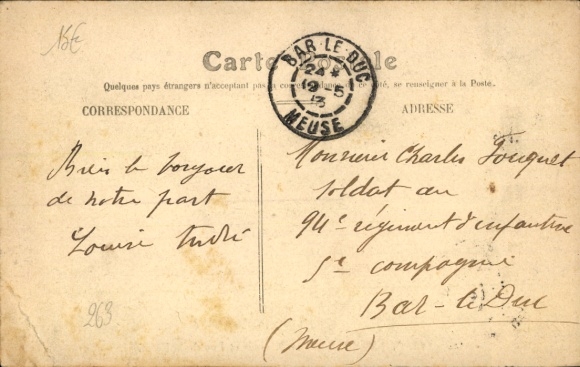 15€
Carte Postale
Quelques pays étrangers n'acceptant pas la correspondance de ce côté, se renseigner à la Poste.
BAR-LE-DUC
24 *
12-5
13
MEUSE
CORRESPONDANCE
ADRESSE
Bien le bonjour
de notre part
Louise André
263
Monsieur Charles Fouquet
soldat au
94e régiment d'infanterie
5e compagnie
Bar-le-Duc
(Meuse)